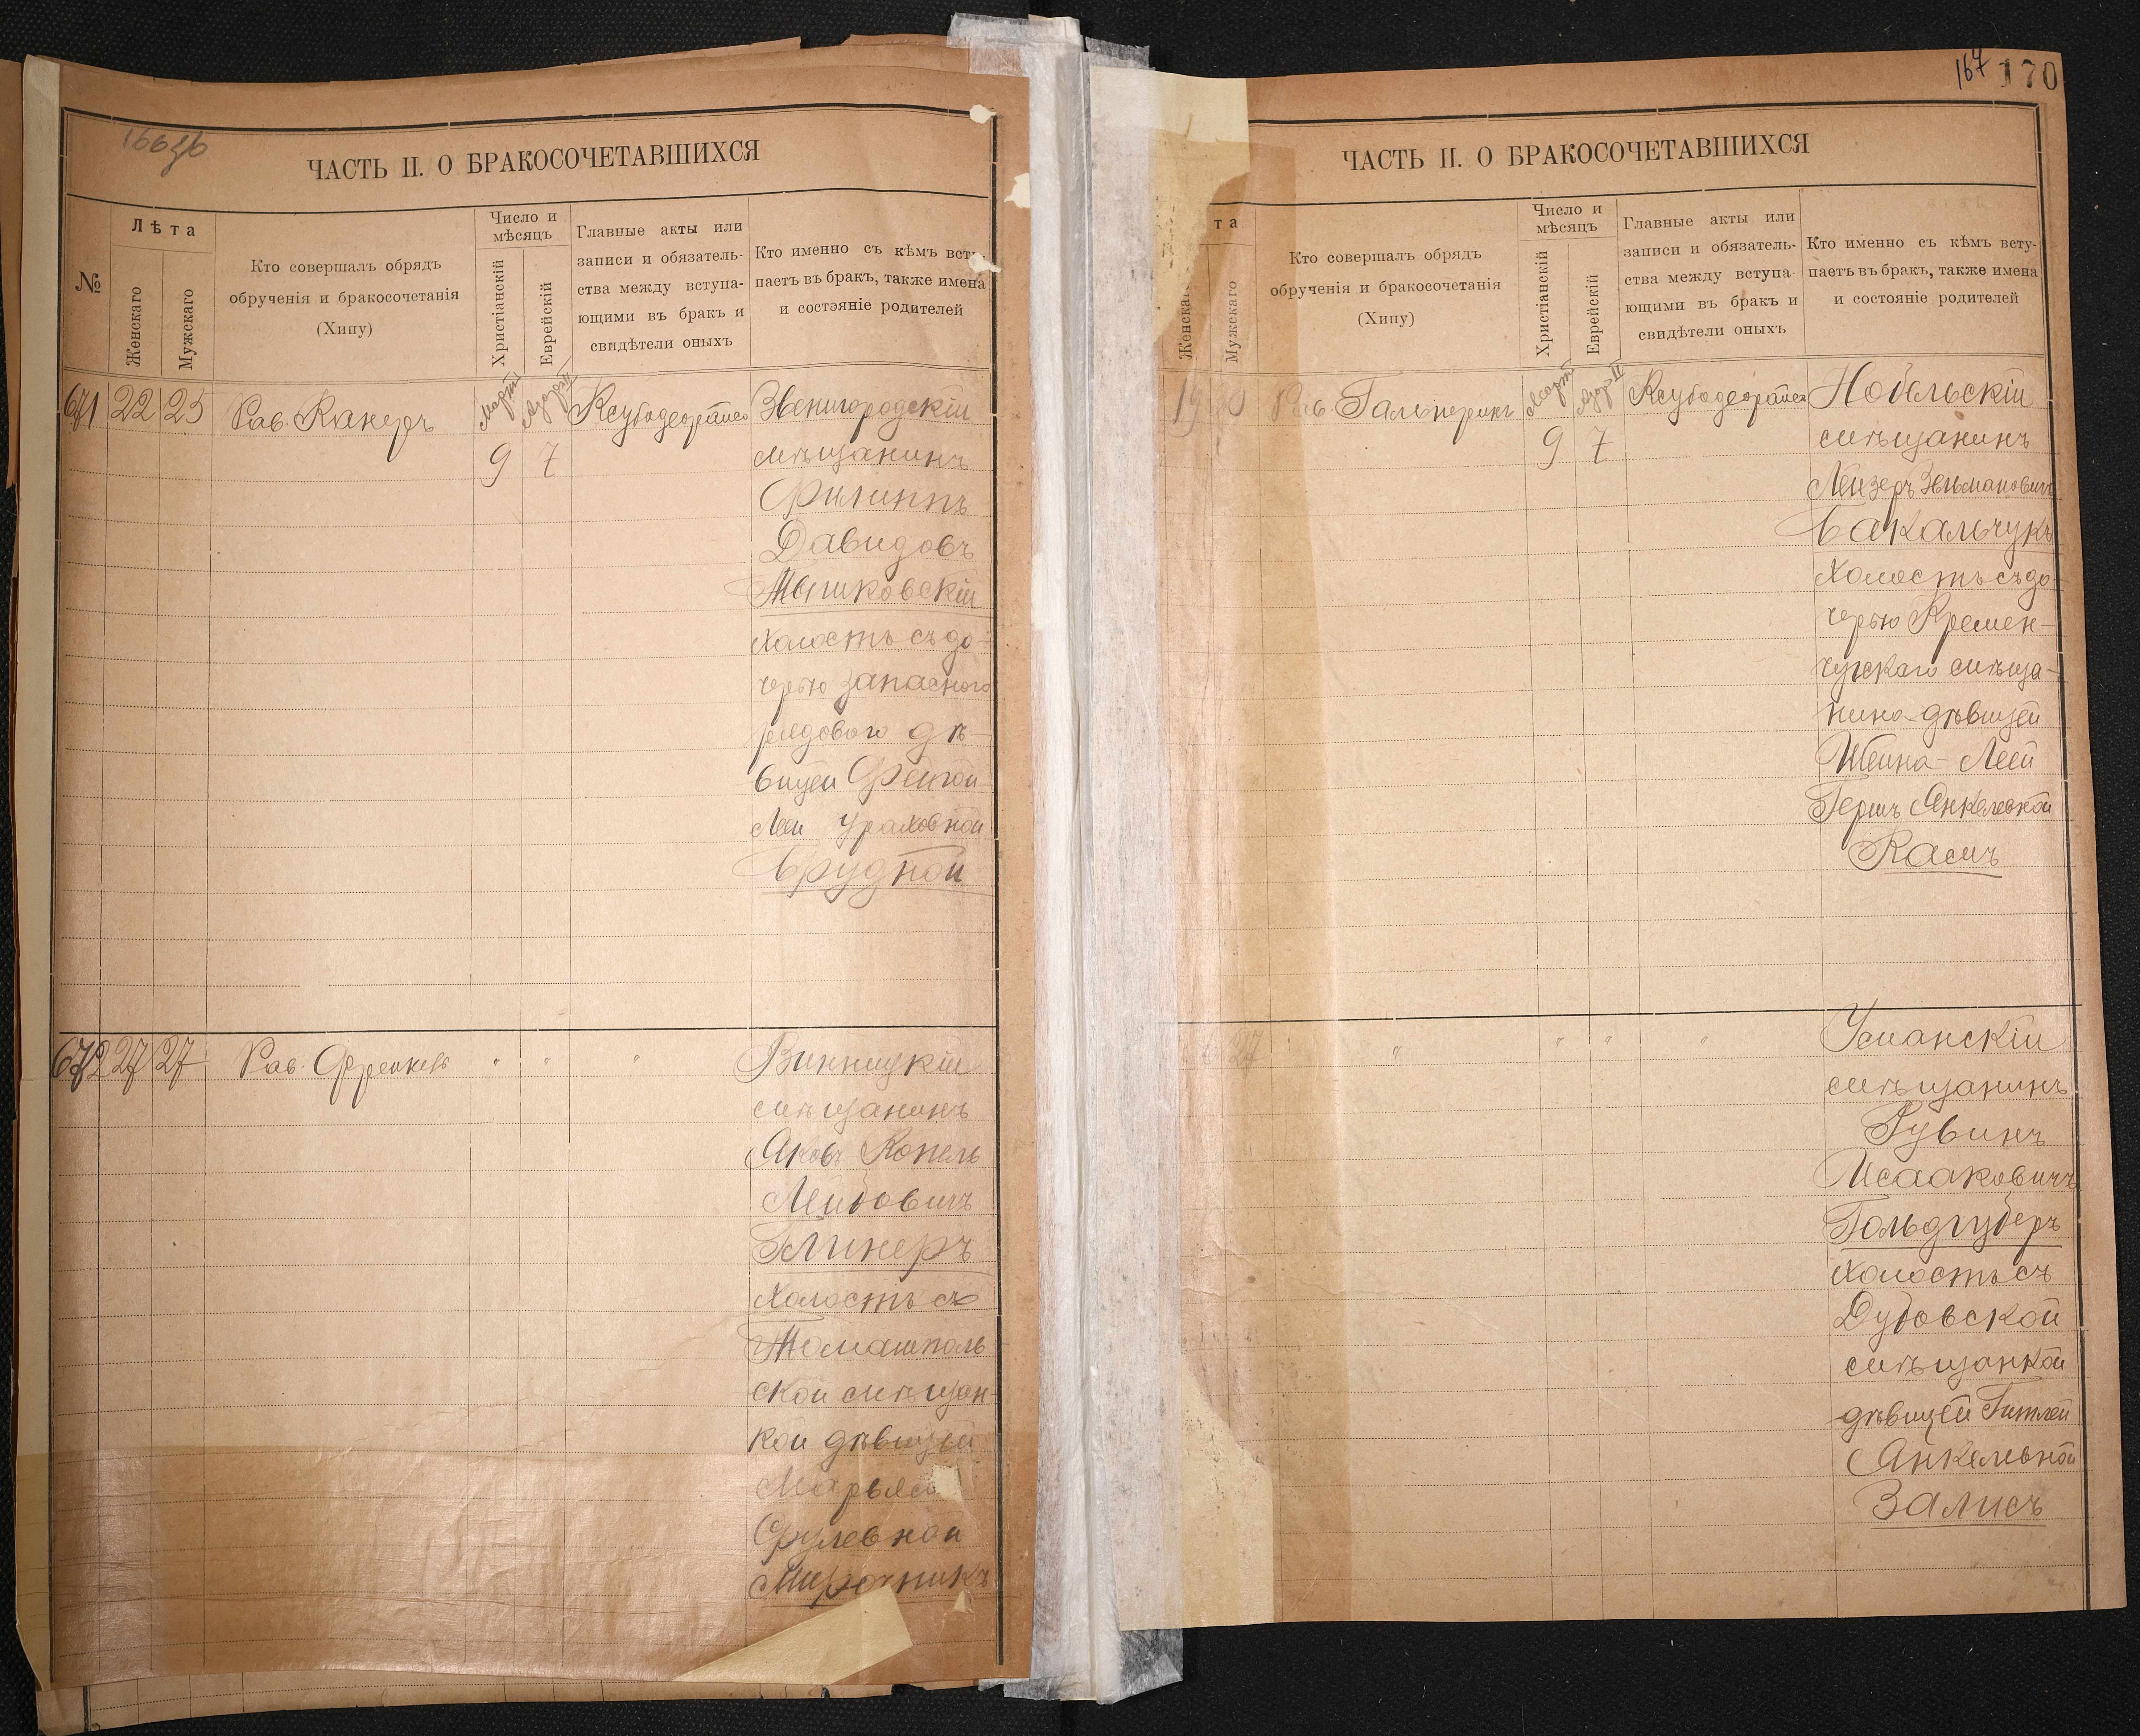 166 зб
ЧАСТЬ II. О БРАКОСОЧЕТАВШИХСЯ
№
Лѣта
Женскаго
Мужскаго
Кто совершалъ обрядъ
обрученія и бракосочетанія
(Хипу)
Число и
мѣсяцъ
Христіанскій
Еврейскій
Главные акты или
записи и обязатель-
ства между вступа-
ющими въ бракъ и
свидѣтели оныхъ
Кто именно съ кѣмъ всту-
паетъ въ бракъ, также имена
и состояніе родителей
671 22 25 Рав. Канеръ Мартъ 9 Адаръ II 7
Звенигородскій
мѣщанинъ
Филиппъ
Давидовъ
Мышковскій
холостъ съ до-
черью запасного
рядового дѣ-
вицей Фейгой
Леей
Брудной
672 27 27 Рав. Френкель " " "
Винницкій
мѣщанинъ
Яковъ Копель
Лейбовичъ
Глинеръ
Холостъ съ
Томашполь
ской мѣщан-
кой дѣвицей
Марьясей
Срулевной
Мирочникъ
167 170
ЧАСТЬ II. О БРАКОСОЧЕТАВШИХСЯ
та
Женскаго
Мужскаго
Кто совершалъ обрядъ
обрученія и бракосочетанія
(Хипу)
Число и
мѣсяцъ
Христіанскій
Еврейскій
Главные акты или
записи и обязатель-
ства между вступа-
ющими въ бракъ и
свидѣтели оныхъ
Кто именно съ кѣмъ всту-
паетъ въ бракъ, также имена
и состояніе родителей
Рав Гальперинъ Мартъ 9 Адаръ II 7
Нобельскій
мѣщанинъ
Лейзеръ Зельмановичъ
Бакальчукъ
холостъ съ до-
черью Кремен-
чугскаго мѣща-
нина дѣвицей
Шейна-Леей
Гершъ Янкелевной
Касъ
27 " " " "
Уманскій
мѣщанинъ
Рувинъ
Исааковичъ
Гольдгуберъ
холостъ съ
Дубовской
мѣщанкой
дѣвицей Гитлей
Янкелевной
Залисъ